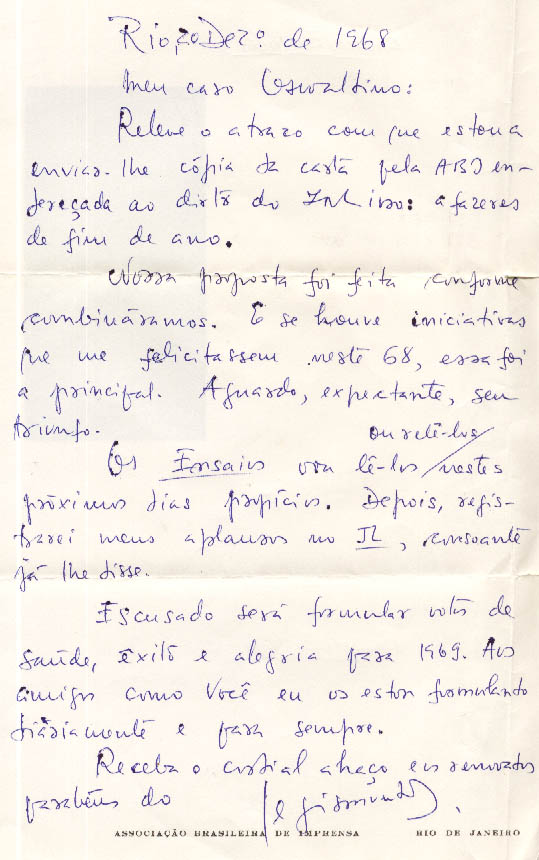 Rio, 20 Dezº de 1968
Meu caro Oswaldino:
Releve o atrazo com que estou a
enviar-lhe cópia da carta pela ABI en-
dereçada ao dirtô do INLivro: afazeres
de fim de ano.
Nossa proposta foi feita conforme
combináramos. E se houve iniciativas
que me felicitassem neste 68, essa foi
a principal. Aguardo, expectante, seu
triunfo.
ou relê-los
Os Ensaios vou lê-los / nestes
próximos dias propícios. Depois, regis-
trarei meus aplausos no JL, consoante
já lhe disse.
Escusado será formular votos de
saúde, êxito e alegria para 1969. Aos
amigos como Você eu os estou formulando
diàriamente e para sempre.
Receba o cordial abraço e os renovados
parabéns do
ASSOCIAÇÃO BRASILEIRA DE IMPRENSA RIO DE JANEIRO